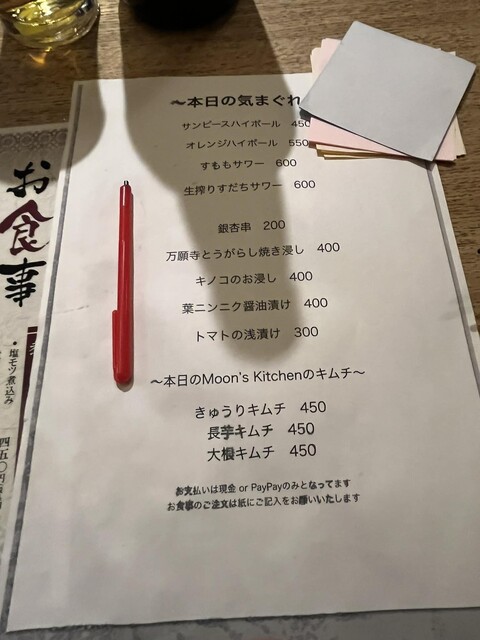 〜本日の気まぐれ
サンピースハイボール 450
オレンジハイボール 550
すももサワー 600
生搾りすだちサワー 600
銀杏串 200
万願寺とうがらし焼き浸し 400
キノコのお浸し 400
葉ニンニク醤油漬け 400
トマトの浅漬け 300
〜本日のMoon's Kitchenのキムチ〜
きゅうりキムチ 450
長芋キムチ 450
大根キムチ 450
お支払いは現金 or PayPayのみとなってます
お食事のご注文は紙にご記入をお願いいたします
お食事
・塩モツ煮込み
四五〇円